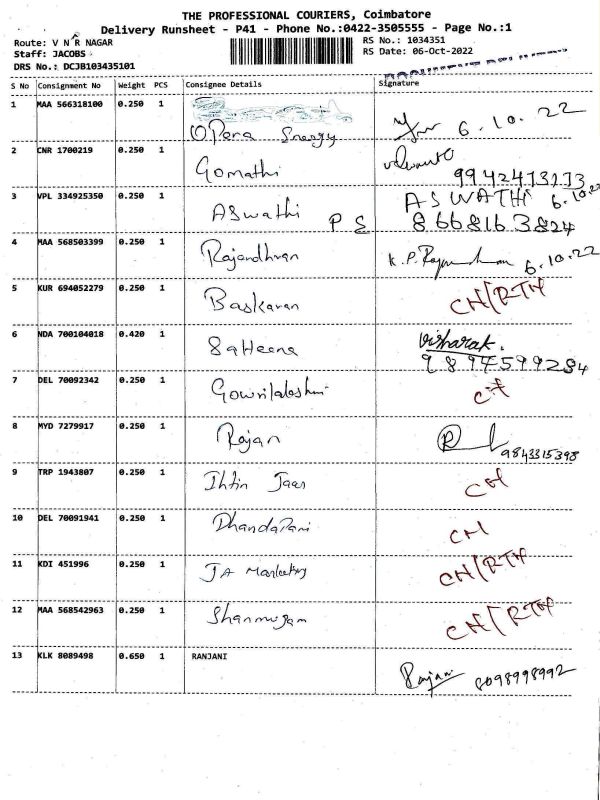 THE PROFESSIONAL COURIERS, Coimbatore
Delivery Runsheet - P41 - Phone No.:0422-3505555 - Page No.:1
Route: V N R NAGAR RS No.: 1034351
Staff: JACOBS RS Date: 06-Oct-2022
DRS No.: DCJB103435101
S No Consignment No Weight PCS Consignee Details Signature
1 MAA 566318100 0.250 1
Opera Energy 6.10.22
2 CNR 1700219 0.250 1 Gomathi
9942473173
3 VPL 334925350 0.250 1 Aswathi P S ASWATHI 6.10.22
8668163824
4 MAA 568503399 0.250 1 Rajandhran K.P. 6.10.22
5 KUR 694052279 0.250 1 Baskaran CH/RTH
6 NDA 700104018 0.420 1 SaHeena Visharak.
9894599284
7 DEL 70092342 0.250 1 Gowrilakshmi CH
8 MYD 7279917 0.250 1 Rajan R 9843315398
9 TRP 1943807 0.250 1 CH
10 DEL 70091941 0.250 1 DhandaPani CH
11 KDI 451996 0.250 1 JA Marketing CH/RTH
12 MAA 568542963 0.250 1 Shanmugam CH/RTH
13 KLK 8089498 0.650 1 RANJANI
8098998992